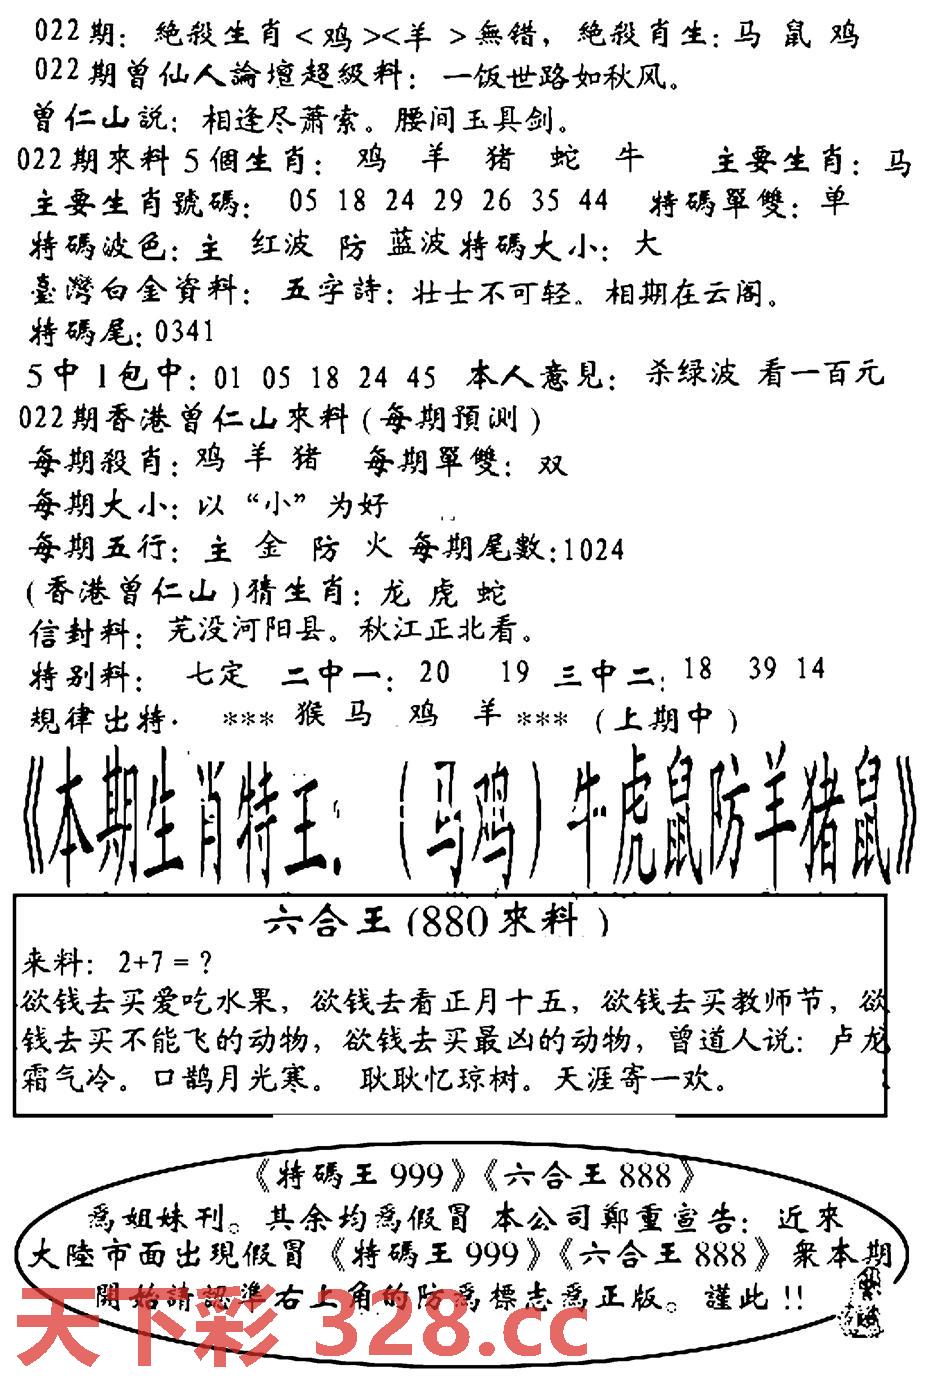 022期：絶殺生肖<鸡><羊>無错，絶殺肖生：马 鼠 鸡
022期曾仙人論壇超級料：一饭世路如秋风。
曾仁山説：相逢尽萧索。腰间玉具剑。
022期來料5個生肖：鸡 羊 猪 蛇 牛 主要生肖：马
主要生肖號碼：05 18 24 29 26 35 44 特碼單雙：单
特碼波色：主 红波 防 蓝波 特碼大小：大
臺灣白金資料：五字詩：壮士不可轻。相期在云阁。
特碼尾：0341
5中1包中：01 05 18 24 45 本人意見：杀绿波 看一百元
022期香港曾仁山來料(每期預测)
每期殺肖：鸡 羊 猪 每期單雙：双
每期大小：以“小”为好
每期五行：主 金 防 火 每期尾數：1024
(香港曾仁山)猜生肖：龙 虎 蛇
信封料：芜没河阳县。秋江正北看。
特别料：七定 二中一：20 19 三中二：18 39 14
規律出特· ***猴 马 鸡 羊***(上期中)
《本期生肖特王：(马鸡)牛虎鼠防羊猪鼠》
六合王(880來料)
来料：2+7=？
欲钱去买爱吃水果，欲钱去看正月十五，欲钱去买教师节，欲
钱去买不能飞的动物，欲钱去买最凶的动物，曾道人说：卢龙
霜气冷。口鹊月光寒。 耿耿忆琼树。天涯寄一欢。
《特碼王999》《六合王888》
爲姐妹刊。其余均爲假冒 本公司鄭重宣告：近來
大陸市面出現假冒《特碼王999》《六合王888》衆本期
開始請認準右上角的防爲標志爲正版。謹此!!
天下彩 328.cc